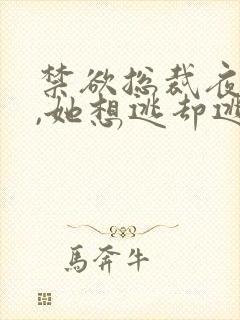 禁欲总裁夜
,她想逃却逃
馬奔牛